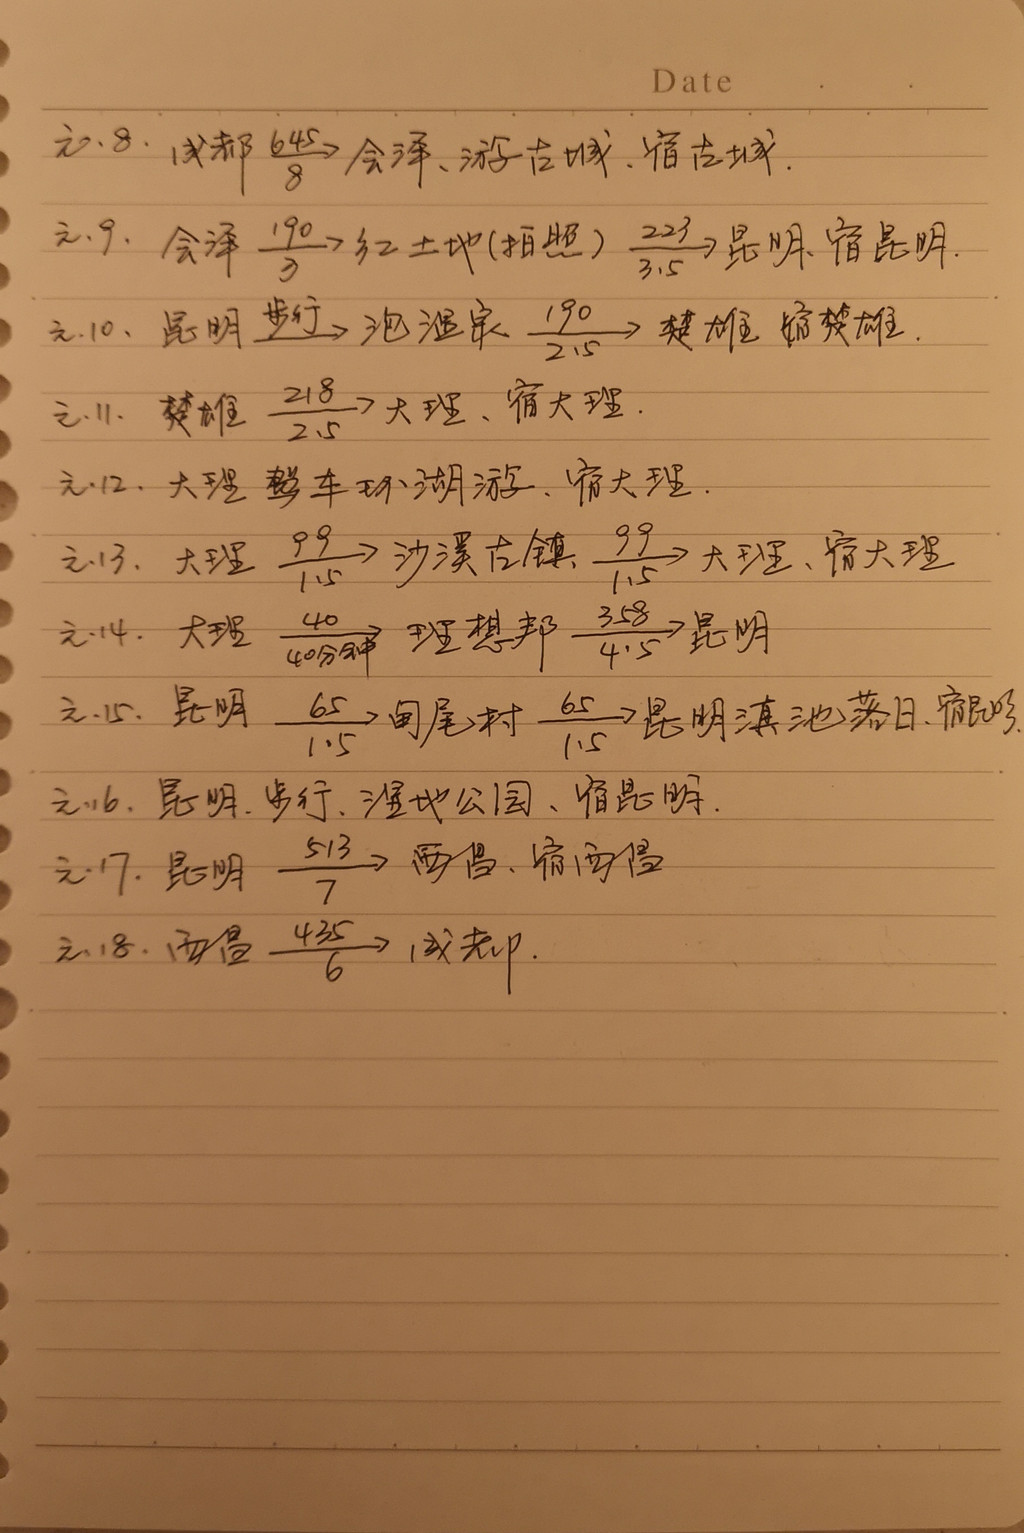 Date
元.8. 成都 645/8→ 会泽、游古城、宿古城.
元.9. 会泽 190/3→ 红土地(拍照) 223/3.5→ 昆明、宿昆明.
元.10、昆明 步行→ 泡温泉 190/2.5→ 楚雄 宿楚雄.
元.11. 楚雄 218/2.5→ 大理、宿大理.
元.12. 大理 整车环湖游、宿大理.
元.13. 大理 99/1.5→ 沙溪古镇 99/1.5→ 大理、宿大理
元.14. 大理 40/40分钟→ 理想邦 358/4.5→ 昆明
元.15. 昆明 65/1.5→ 甸尾村 65/1.5→ 昆明滇池落日、宿昆明.
元.16. 昆明. 步行、湿地公园、宿昆明.
元.17. 昆明 513/7→ 西昌、宿西昌
元.18. 西昌 435/6→ 成都.